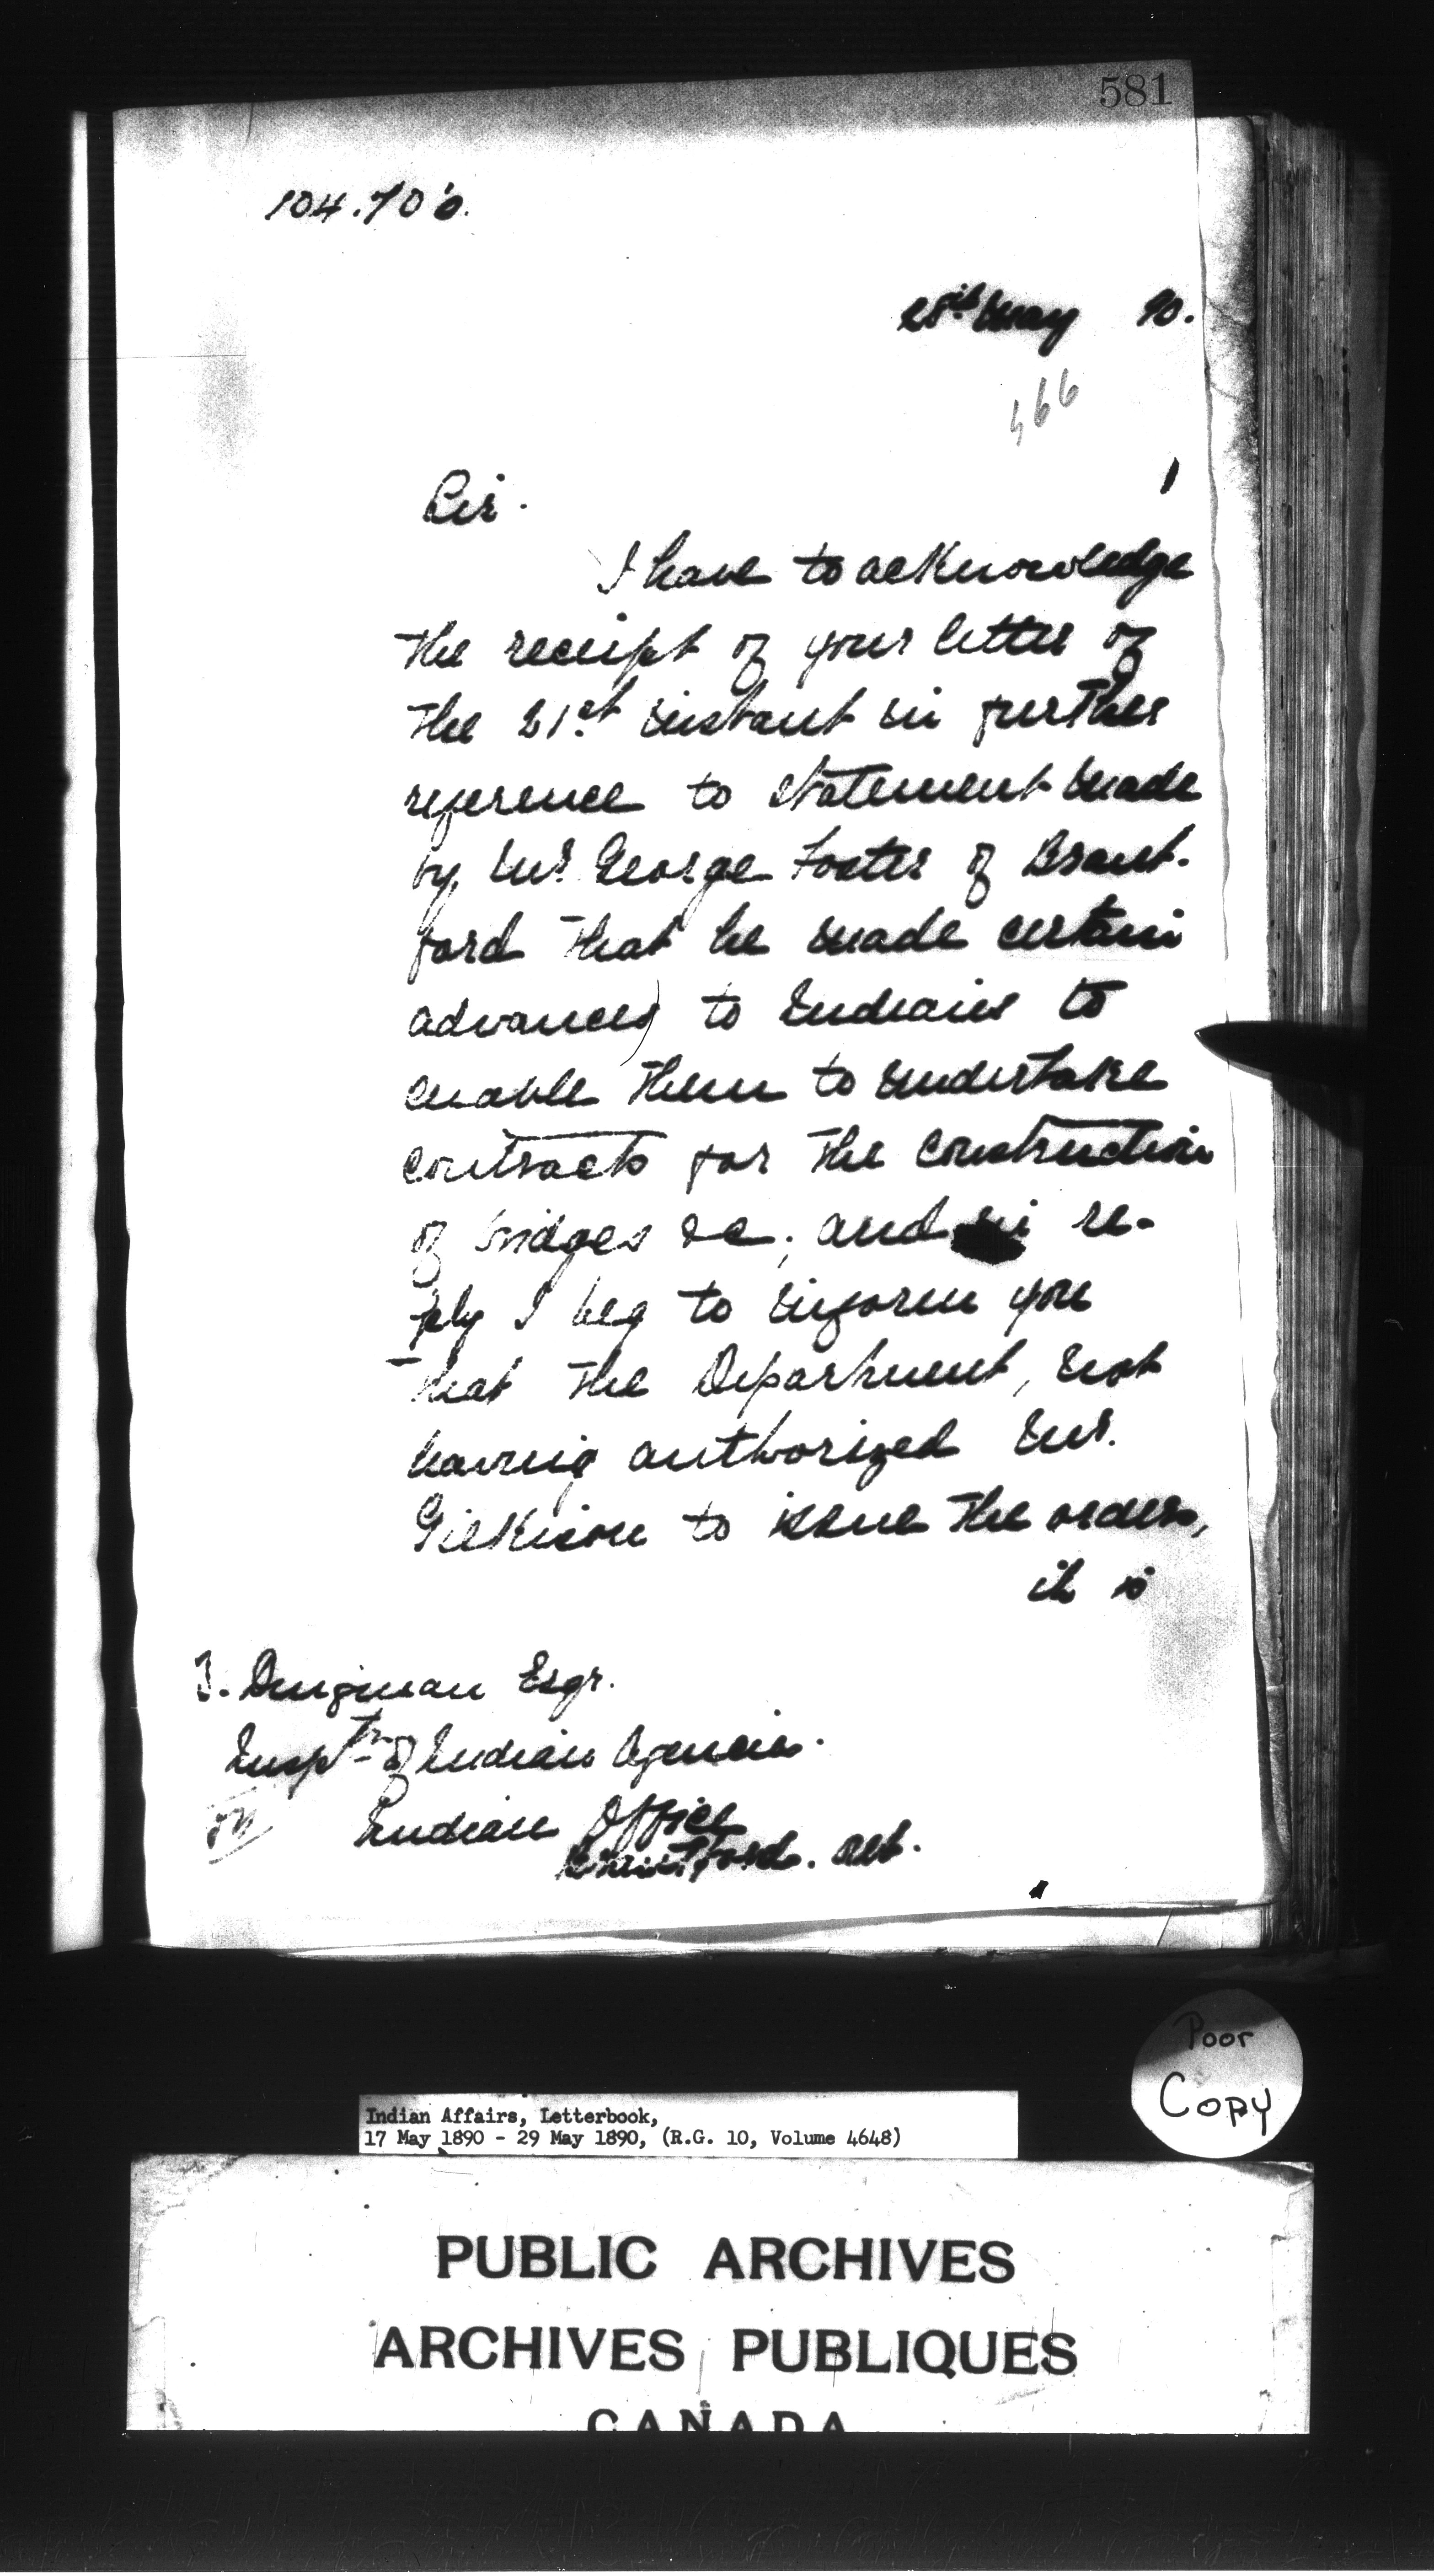 581
104.706.
28th May 90.
566
Sir.
I have to acknowledge
the receipt of your letter of
the 21st instant in further
reference to statement made
by Mr. George Foster of Brant-
ford that he made certain
advances to Indians to
enable them to undertake
contracts for the construction
of bridges &c; and in re-
ply I beg to inform you
that the Department, not
having authorized Mr.
Gilkison to issue the orders,
it is
J. Dingman Esqr.
Inspr. of Indian Agencies.
Indian Office
Brantford. Ont.
Poor
Copy
Indian Affairs, Letterbook,
17 May 1890 - 29 May 1890, (R.G. 10, Volume 4648)
PUBLIC ARCHIVES
ARCHIVES PUBLIQUES
CANADA